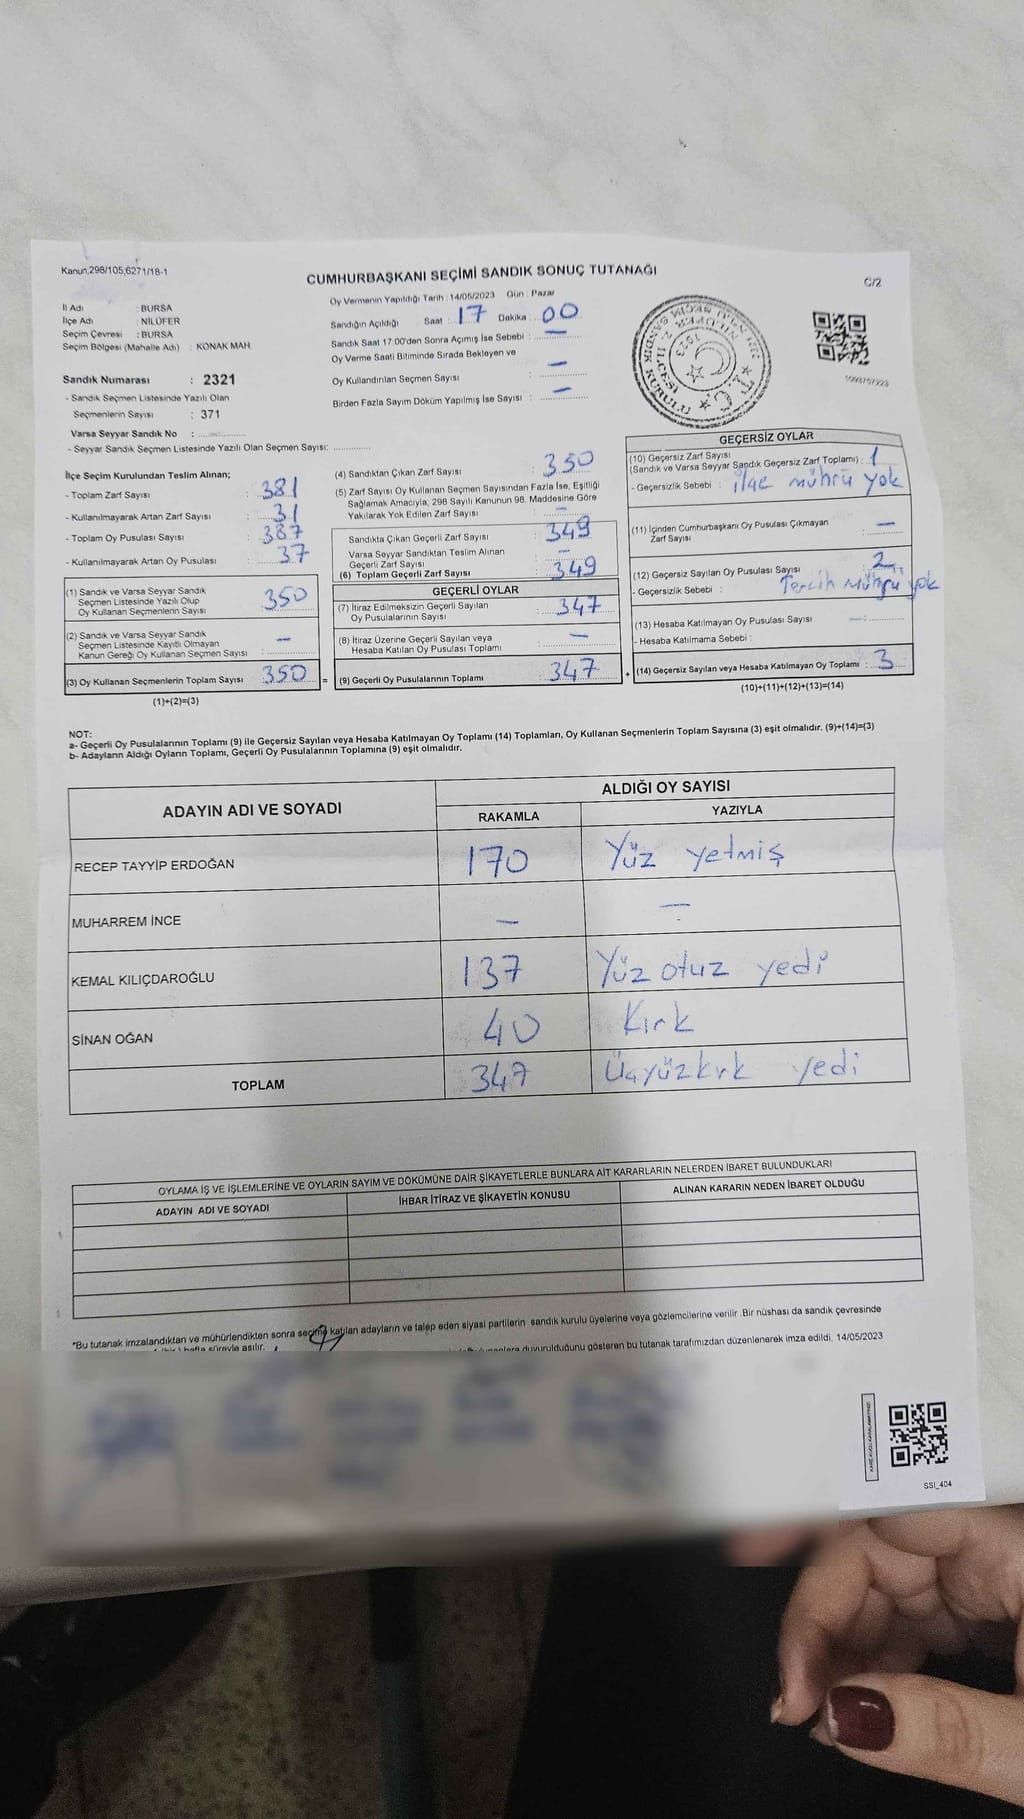 Kanun,298/105;6271/18-1
CUMHURBAŞKANI SEÇİMİ SANDIK SONUÇ TUTANAĞI
C/2
İl Adı : BURSA
İlçe Adı : NİLÜFER
Seçim Çevresi : BURSA
Seçim Bölgesi (Mahalle Adı) : KONAK MAH.
Sandık Numarası : 2321
- Sandık Seçmen Listesinde Yazılı Olan
Seçmenlerin Sayısı : 371
Varsa Seyyar Sandık No :
- Seyyar Sandık Seçmen Listesinde Yazılı Olan Seçmen Sayısı:
Oy Vermenin Yapıldığı Tarih : 14/05/2023 Gün : Pazar
Sandığın Açıldığı Saat : 17 Dakika : 00
Sandık Saat 17.00'den Sonra Açımış İse Sebebi : —
Oy Verme Saati Bitiminde Sırada Bekleyen ve
Oy Kullandırılan Seçmen Sayısı : —
Birden Fazla Sayım Döküm Yapılmış İse Sayısı : —
İlçe Seçim Kurulundan Teslim Alınan;
- Toplam Zarf Sayısı : 381
- Kullanılmayarak Artan Zarf Sayısı : 31
- Toplam Oy Pusulası Sayısı : 387
- Kullanılmayarak Artan Oy Pusulası : 37
(1) Sandık ve Varsa Seyyar Sandık
Seçmen Listesinde Yazılı Olup
Oy Kullanan Seçmenlerin Sayısı : 350
(2) Sandık ve Varsa Seyyar Sandık
Seçmen Listesinde Kayıtlı Olmayan
Kanun Gereği Oy Kullanan Seçmen Sayısı : —
(3) Oy Kullanan Seçmenlerin Toplam Sayısı : 350 =
(1)+(2)=(3)
(4) Sandıktan Çıkan Zarf Sayısı : 350
(5) Zarf Sayısı Oy Kullanan Seçmen Sayısından Fazla İse, Eşitliği
Sağlamak Amacıyla; 298 Sayılı Kanunun 98. Maddesine Göre
Yakılarak Yok Edilen Zarf Sayısı : —
Sandıkta Çıkan Geçerli Zarf Sayısı : 349
Varsa Seyyar Sandıktan Teslim Alınan
Geçerli Zarf Sayısı : —
(6) Toplam Geçerli Zarf Sayısı : 349
GEÇERLİ OYLAR
(7) İtiraz Edilmeksizin Geçerli Sayılan
Oy Pusulalarının Sayısı : 347
(8) İtiraz Üzerine Geçerli Sayılan veya
Hesaba Katılan Oy Pusulası Toplamı : —
(9) Geçerli Oy Pusulalarının Toplamı : 347 +
1093757223
GEÇERSİZ OYLAR
(10) Geçersiz Zarf Sayısı
(Sandık ve Varsa Seyyar Sandık Geçersiz Zarf Toplamı) : 1
- Geçersizlik Sebebi : ilçe mührü yok
(11) İçinden Cumhurbaşkanı Oy Pusulası Çıkmayan
Zarf Sayısı : —
(12) Geçersiz Sayılan Oy Pusulası Sayısı : 2
- Geçersizlik Sebebi : Tercih mührü yok
(13) Hesaba Katılmayan Oy Pusulası Sayısı : —
- Hesaba Katılmama Sebebi :
(14) Geçersiz Sayılan veya Hesaba Katılmayan Oy Toplamı : 3
(10)+(11)+(12)+(13)=(14)
NOT:
a- Geçerli Oy Pusulalarının Toplamı (9) ile Geçersiz Sayılan veya Hesaba Katılmayan Oy Toplamı (14) Toplamları, Oy Kullanan Seçmenlerin Toplam Sayısına (3) eşit olmalıdır. (9)+(14)=(3)
b- Adayların Aldığı Oyların Toplamı, Geçerli Oy Pusulalarının Toplamına (9) eşit olmalıdır.
ADAYIN ADI VE SOYADI ALDIĞI OY SAYISI
RAKAMLA YAZIYLA
RECEP TAYYİP ERDOĞAN 170 Yüz yetmiş
MUHARREM İNCE — —
KEMAL KILIÇDAROĞLU 137 Yüz otuz yedi
SİNAN OĞAN 40 Kırk
TOPLAM 347 Üçyüzkırk yedi
OYLAMA İŞ VE İŞLEMLERİNE VE OYLARIN SAYIM VE DÖKÜMÜNE DAİR ŞİKAYETLERLE BUNLARA AİT KARARLARIN NELERDEN İBARET BULUNDUKLARI
ADAYIN ADI VE SOYADI İHBAR İTİRAZ VE ŞİKAYETİN KONUSU ALINAN KARARIN NEDEN İBARET OLDUĞU
*Bu tutanak imzalandıktan ve mühürlendikten sonra seçime katılan adayların ve talep eden siyasi partilerin sandık kurulu üyelerine veya gözlemcilerine verilir .Bir nüshası da sandık çevresinde
(bir) hafta süreyle asılır. duyurulduğunu gösteren bu tutanak tarafımızdan düzenlenerek imza edildi. 14/05/2023
SSI_404